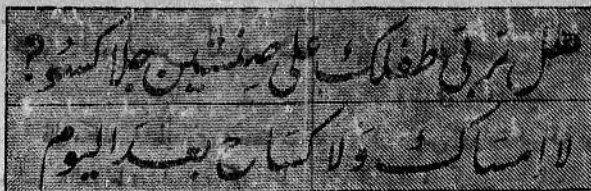 هل تربي طفلك على صنشين جلاكسو ?
لا امساك ولا كساح بعد اليوم